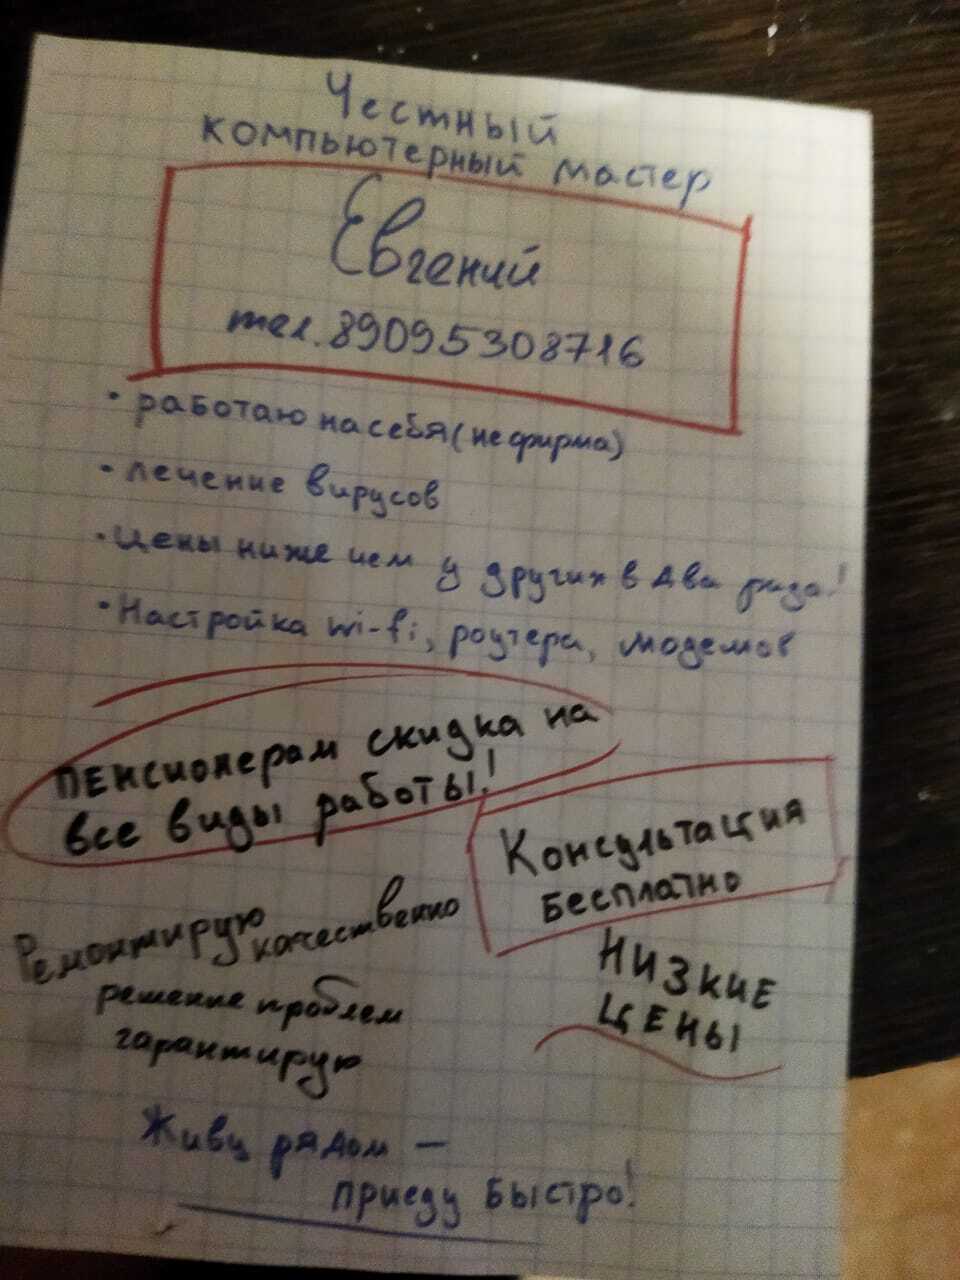 Честный
компьютерный мастер
Евгений
тел. 89095308716
• работаю на себя (не фирма)
• лечение вирусов
• Цены ниже чем у других в два раза!
• Настройка wi-fi, роутера, модемов
Пенсионерам скидка на
все виды работы!
Консультация
бесплатно
Ремонтирую
качественно
решение проблем
гарантирую
НИЗКИЕ
ЦЕНЫ
Живу рядом —
приеду быстро!